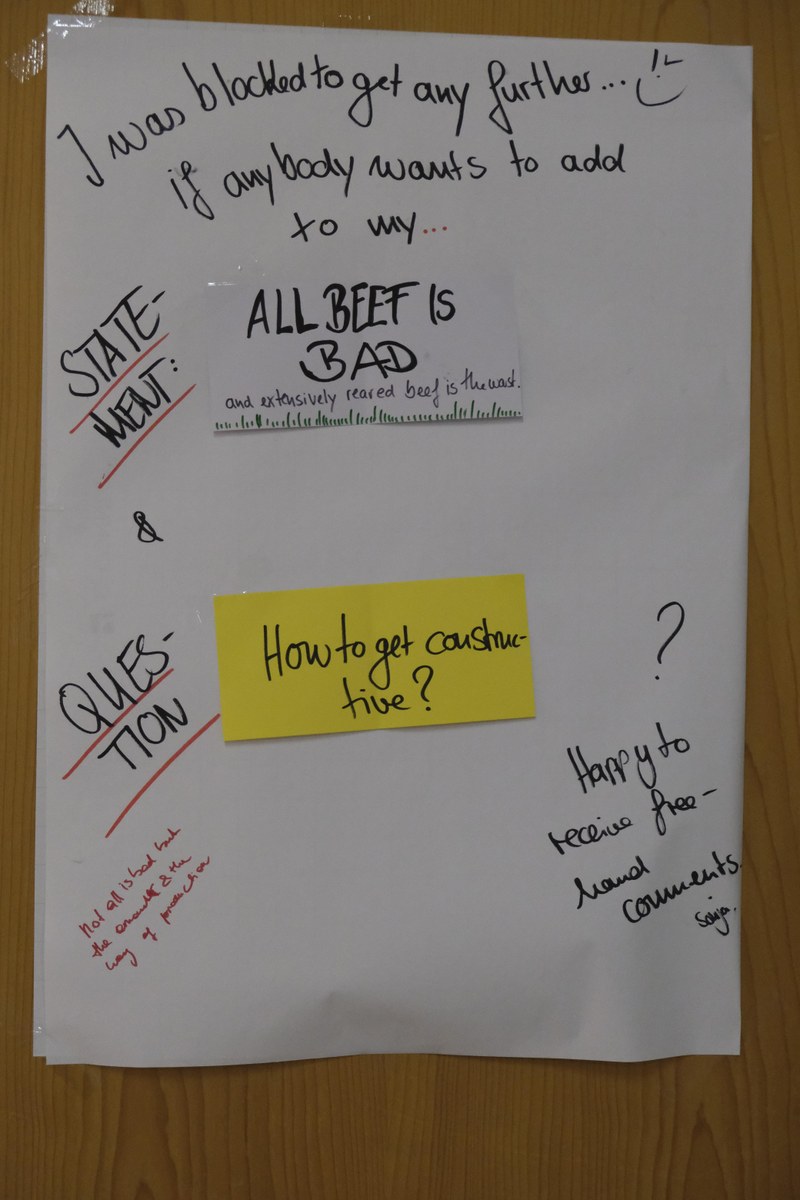 I was blocked to get any further...
if anybody wants to add
to my...
STATE-
MENT:
ALL BEEF IS
BAD
and extensively reared beef is the worst.
&
QUES-
TION
How to get construc-
tive?
?
Happy to
receive free-
hand
comments.
Sonja.
Not all is bad but
the amount & the
way of production